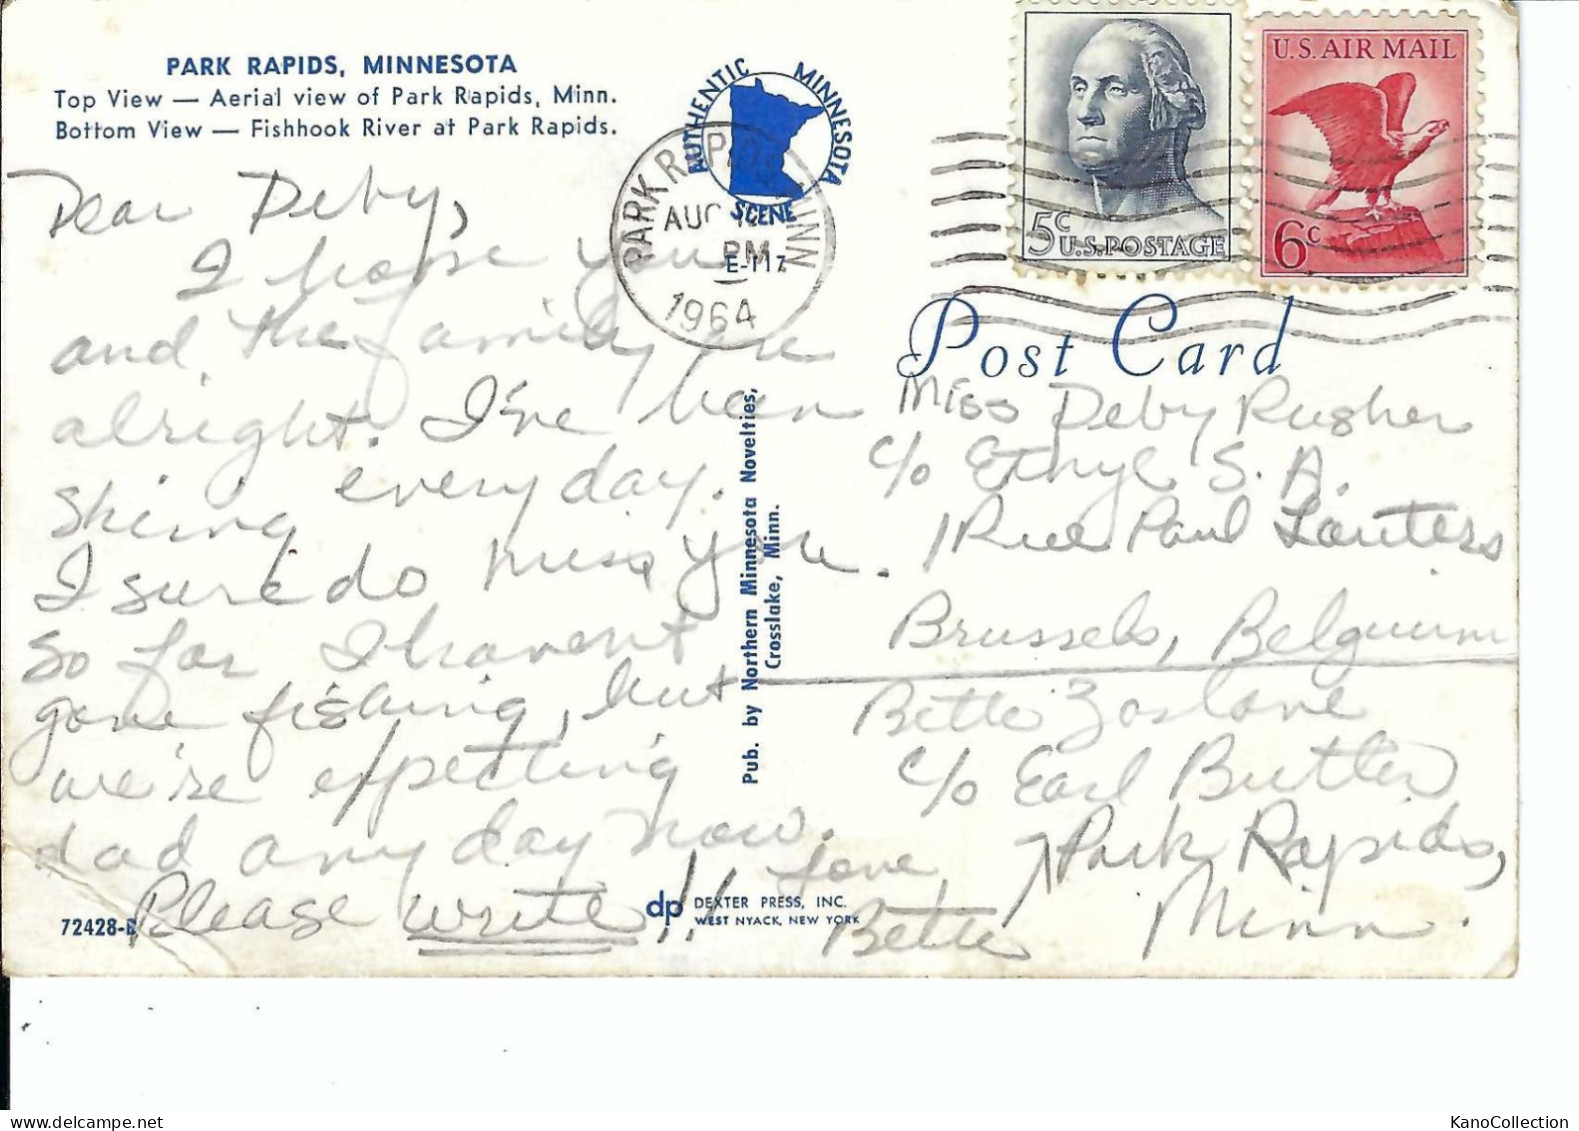 PARK RAPIDS, MINNESOTA
Top View — Aerial view of Park Rapids, Minn.
Bottom View — Fishhook River at Park Rapids.
AUTHENTIC MINNESOTA
SCENE
PARK RAPIDS MINN
AUG
PM
1964
5c U.S. POSTAGE
U.S. AIR MAIL
6c
Post Card
Dear Deby,
I hope you
and the family are
alright. I've been
skiing everyday.
I sure do miss you.
So far I havent
gone fishing, but
we're expecting
dad any day now.
Please write!!
Love,
Bette
Pub. by Northern Minnesota Novelties,
Crosslake, Minn.
Miss Deby Rusher
c/o Ethyl S. A.
1 Rue Paul Lauters
Brussels, Belguium
Bette Zoslove
c/o Earl Butler
Park Rapids,
Minn.
72428-B
dp DEXTER PRESS, INC.
WEST NYACK, NEW YORK
KanoCollection